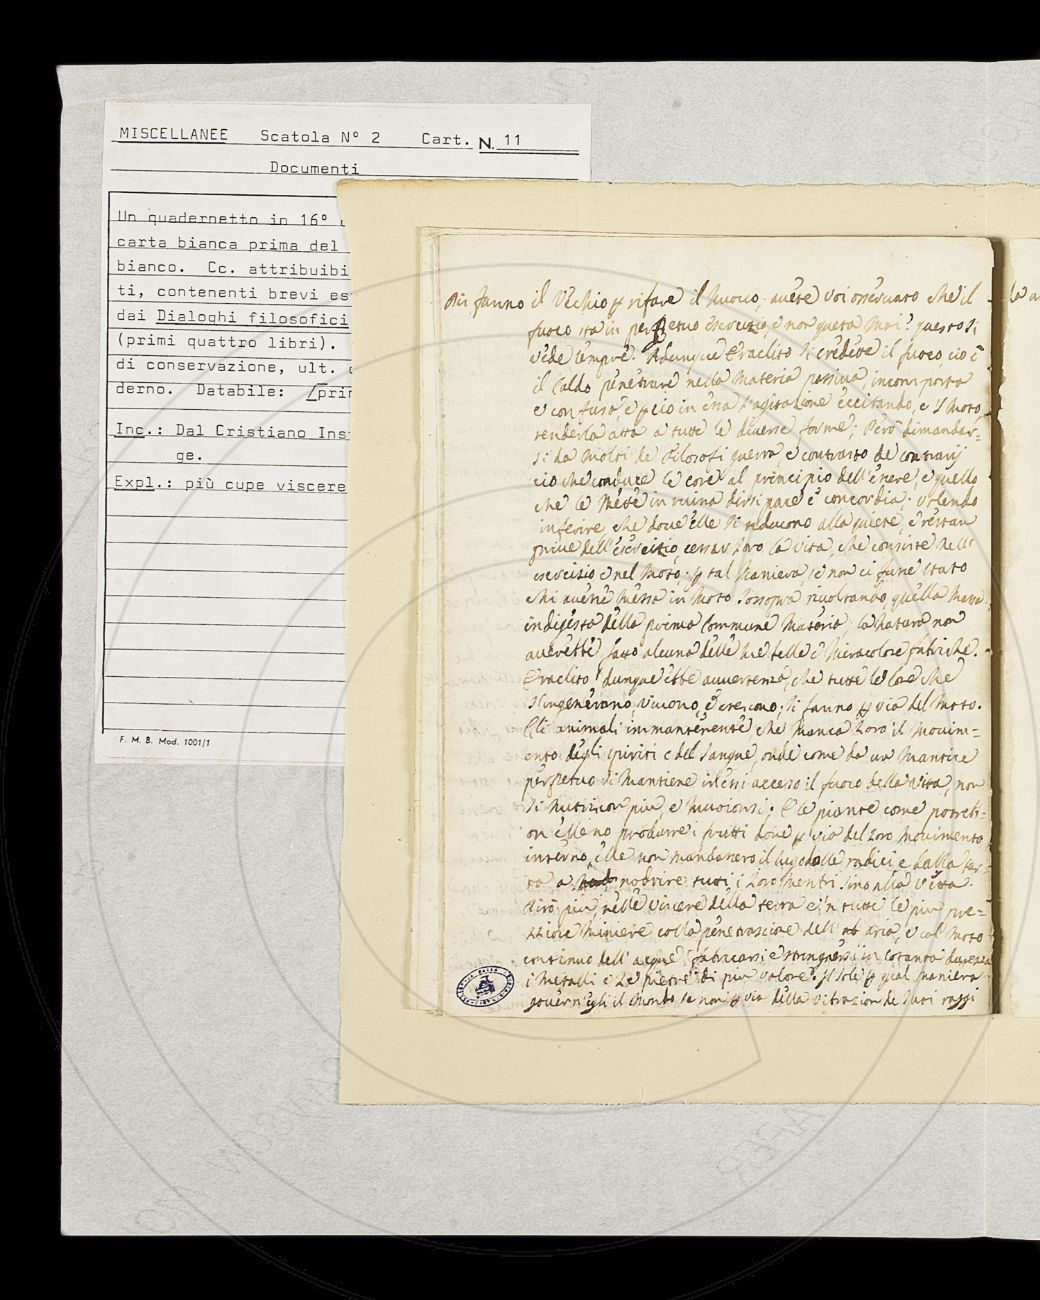 MISCELLANEE Scatola N° 2 Cart. N. 11
Documenti
Un quadernetto in 16°
carta bianca prima del
bianco. Cc. attribuibi
ti, contenenti brevi es
dai Dialoghi filosofici
(primi quattro libri).
di conservazione, ult.
derno. Databile: /prin
Inc.: Dal Cristiano Ins
ge.
Expl.: più cupe viscere
F. M. B. Mod. 1001/1
fanno il Vecchio p rifare il nuovo. avete voi osservato che il
fuoco sta in perpetuo esercizio, e non queta mai? questo si
vede sempre. Adunque Eraclito si credeve il fuoco, cio è
il Caldo penetrare nella Materia passiva, incomposta
e confusa e p cio in essa l'agitazione eccitando, e 'l Moto
renderla atta a tutte le diverse forme; Però dimandar=
si da Molti de Filosofi guerra, e contrasto de contrarij
cio che conduce le cose al principio dell'essere, e quello
che le Mette in ruina dissipare è concordia; Volendo
inferire che dove elle si reducono alla quiete, e restan
prive dell'esercizio, cessar loro la vita, che consiste nell'
esercizio e nel Moto; p tal Maniera, se non ci fusse stato
chi avesse messa in Moto sossopra rivoltando, quella Massa
indigesta della prima Commune Materia; la Natura non
averebbe fatto alcuna delle sue belle e Miracolose fabriche.
Eraclito dunque ebbe avvertenza, che tutte le Cose che
s'ingenerano, vivono, e crescono; si fanno p via del Moto.
Gli animali immantenente che manca loro il movim=
ento degli spiriti e del sangue, onde come da un Mantice
perpetuo si mantiene in essi acceso il fuoco della Vita, non
si nutriscon piu, e muoionsi. E le piante come potreb=
on elleno produrre i frutti dove p via del loro movimento
interno, elle non mandasero il sugo dalle radici, e dalla ter=
ra a nodrire tutti i loro Membri sino alla vetta.
Dirò piu, nelle viscere della terra e 'n tutte le piu pre=
ziose Miniere colla penetrazione dell' aria, e col Moto
continuo dell'acque, fabricarsi e stringnersi in cotanta durezza
i Metalli e le pietre di piu valore. Il Sole p qual maniera
govern'egli il Mondo se non p via della vibrazion de suoi raggi